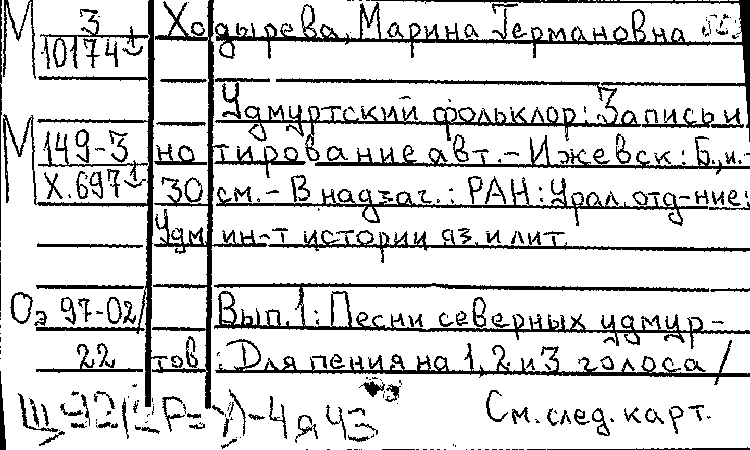 М З Ходырева, Марина Германовна
10174-1
Удмуртский фольклор: Запись и
М 149-3 нотирование авт. - Ижевск: Б.,и.-
Х.697-1 30 см. - В надзаг.: РАН: Урал. отд-ние:
Удм ин-т истории яз. и лит.
Оэ 97-02/ Вып. 1: Песни северных удмур-
22 тов: Для пения на 1, 2 и 3 голоса /
См. след. карт.